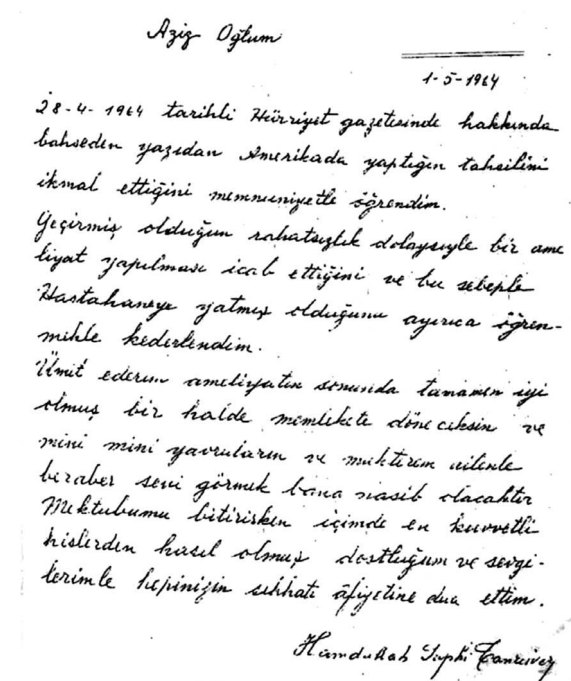 Aziz Oğlum
1-5-1964
28-4-1964 tarihli Hürriyet gazetesinde hakkında
bahseden yazıdan Amerikada yaptığın tahsilini
ikmal ettiğini memnuniyetle öğrendim.
Geçirmiş olduğun rahatsızlık dolaysiyle bir ame
liyat yapılması icab ettiğini ve bu sebeple
Hastahaneye yatmış olduğunu ayırıca öğren-
mekle kederlendim.
Ümit ederim ameliyatın sonunda tamamen iyi
olmuş bir halde memlekete döneceksin ve
mini mini yavruların ve muhterem ailenle
beraber seni görmek bana nasib olacaktır
Mektubumu bitirirken içimde en kuvvetli
hislerden hasıl olmuş dostluğum ve sevgi-
lerimle hepinizin sıhhatı âfiyetine dua ettim.
Hamdullah Suphi Tanrıöver